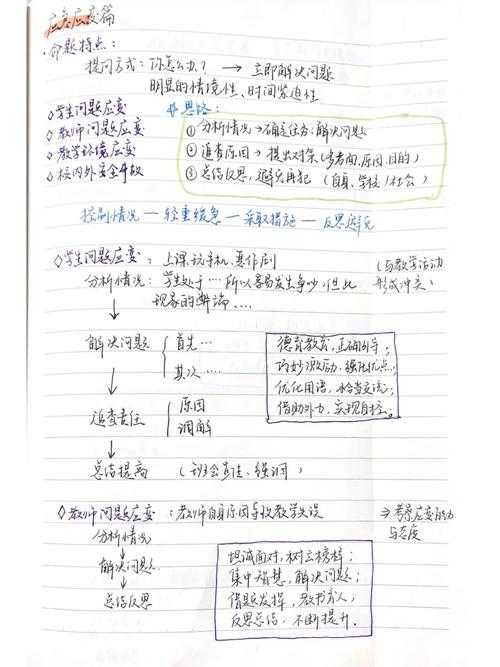 应急应变篇
·命题特点：
提问方式：你怎么办？ → 立即解决问题
明显的情境性、时间紧迫性
◇学生问题应变
◇教师问题应变
◇教学环境应变
◇校内外安全事故
思路：
① 分析情况→确定任务，解决问题
② 追查原因→提出对策（多方面，原因，目的）
③ 总结反思，避免再犯（自身、学校、社会）
控制情况—轻重缓急—采取措施—反思避免
◇学生问题应变：上课玩手机、恶作剧
（与教学活动形成冲突）
分析情况：学生处于… 所以容易发生争吵，但此
现象的弊端….
↓
解决问题 { 首先…
其次…
↓
追查责任 { 原因
调解
↓
总结提高 （班会主题、强调）
德育教育，正确引导；
巧妙激励，强化优点；
优化用语，恰当交流；
借助外力，实现自控。
◇教师问题应变：教师自身原因导致教学失误
⇒考察应变能力
与态度
分析情况
↓
解决问题
↓
总结反思
坦诚面对，树立榜样；
集中智慧，解决问题；
借题发挥，教书育人；
反思总结，不断提升。